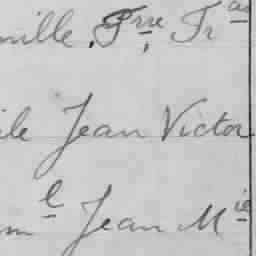 mille, Prre, Fr as
ile Jean Victor
m l Jean M ie